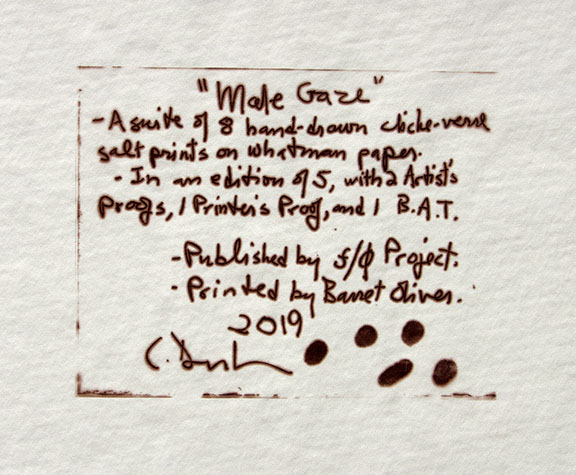 "Male Gaze"
- A suite of 8 hand-drawn cliche-verre
salt prints on whatman paper.
- In an edition of 5, with 2 Artist's
Proofs, 1 Printer's Proof, and 1 B.A.T.
- Published by f/ϕ Project.
- Printed by Barret Oliver.
2019
C.